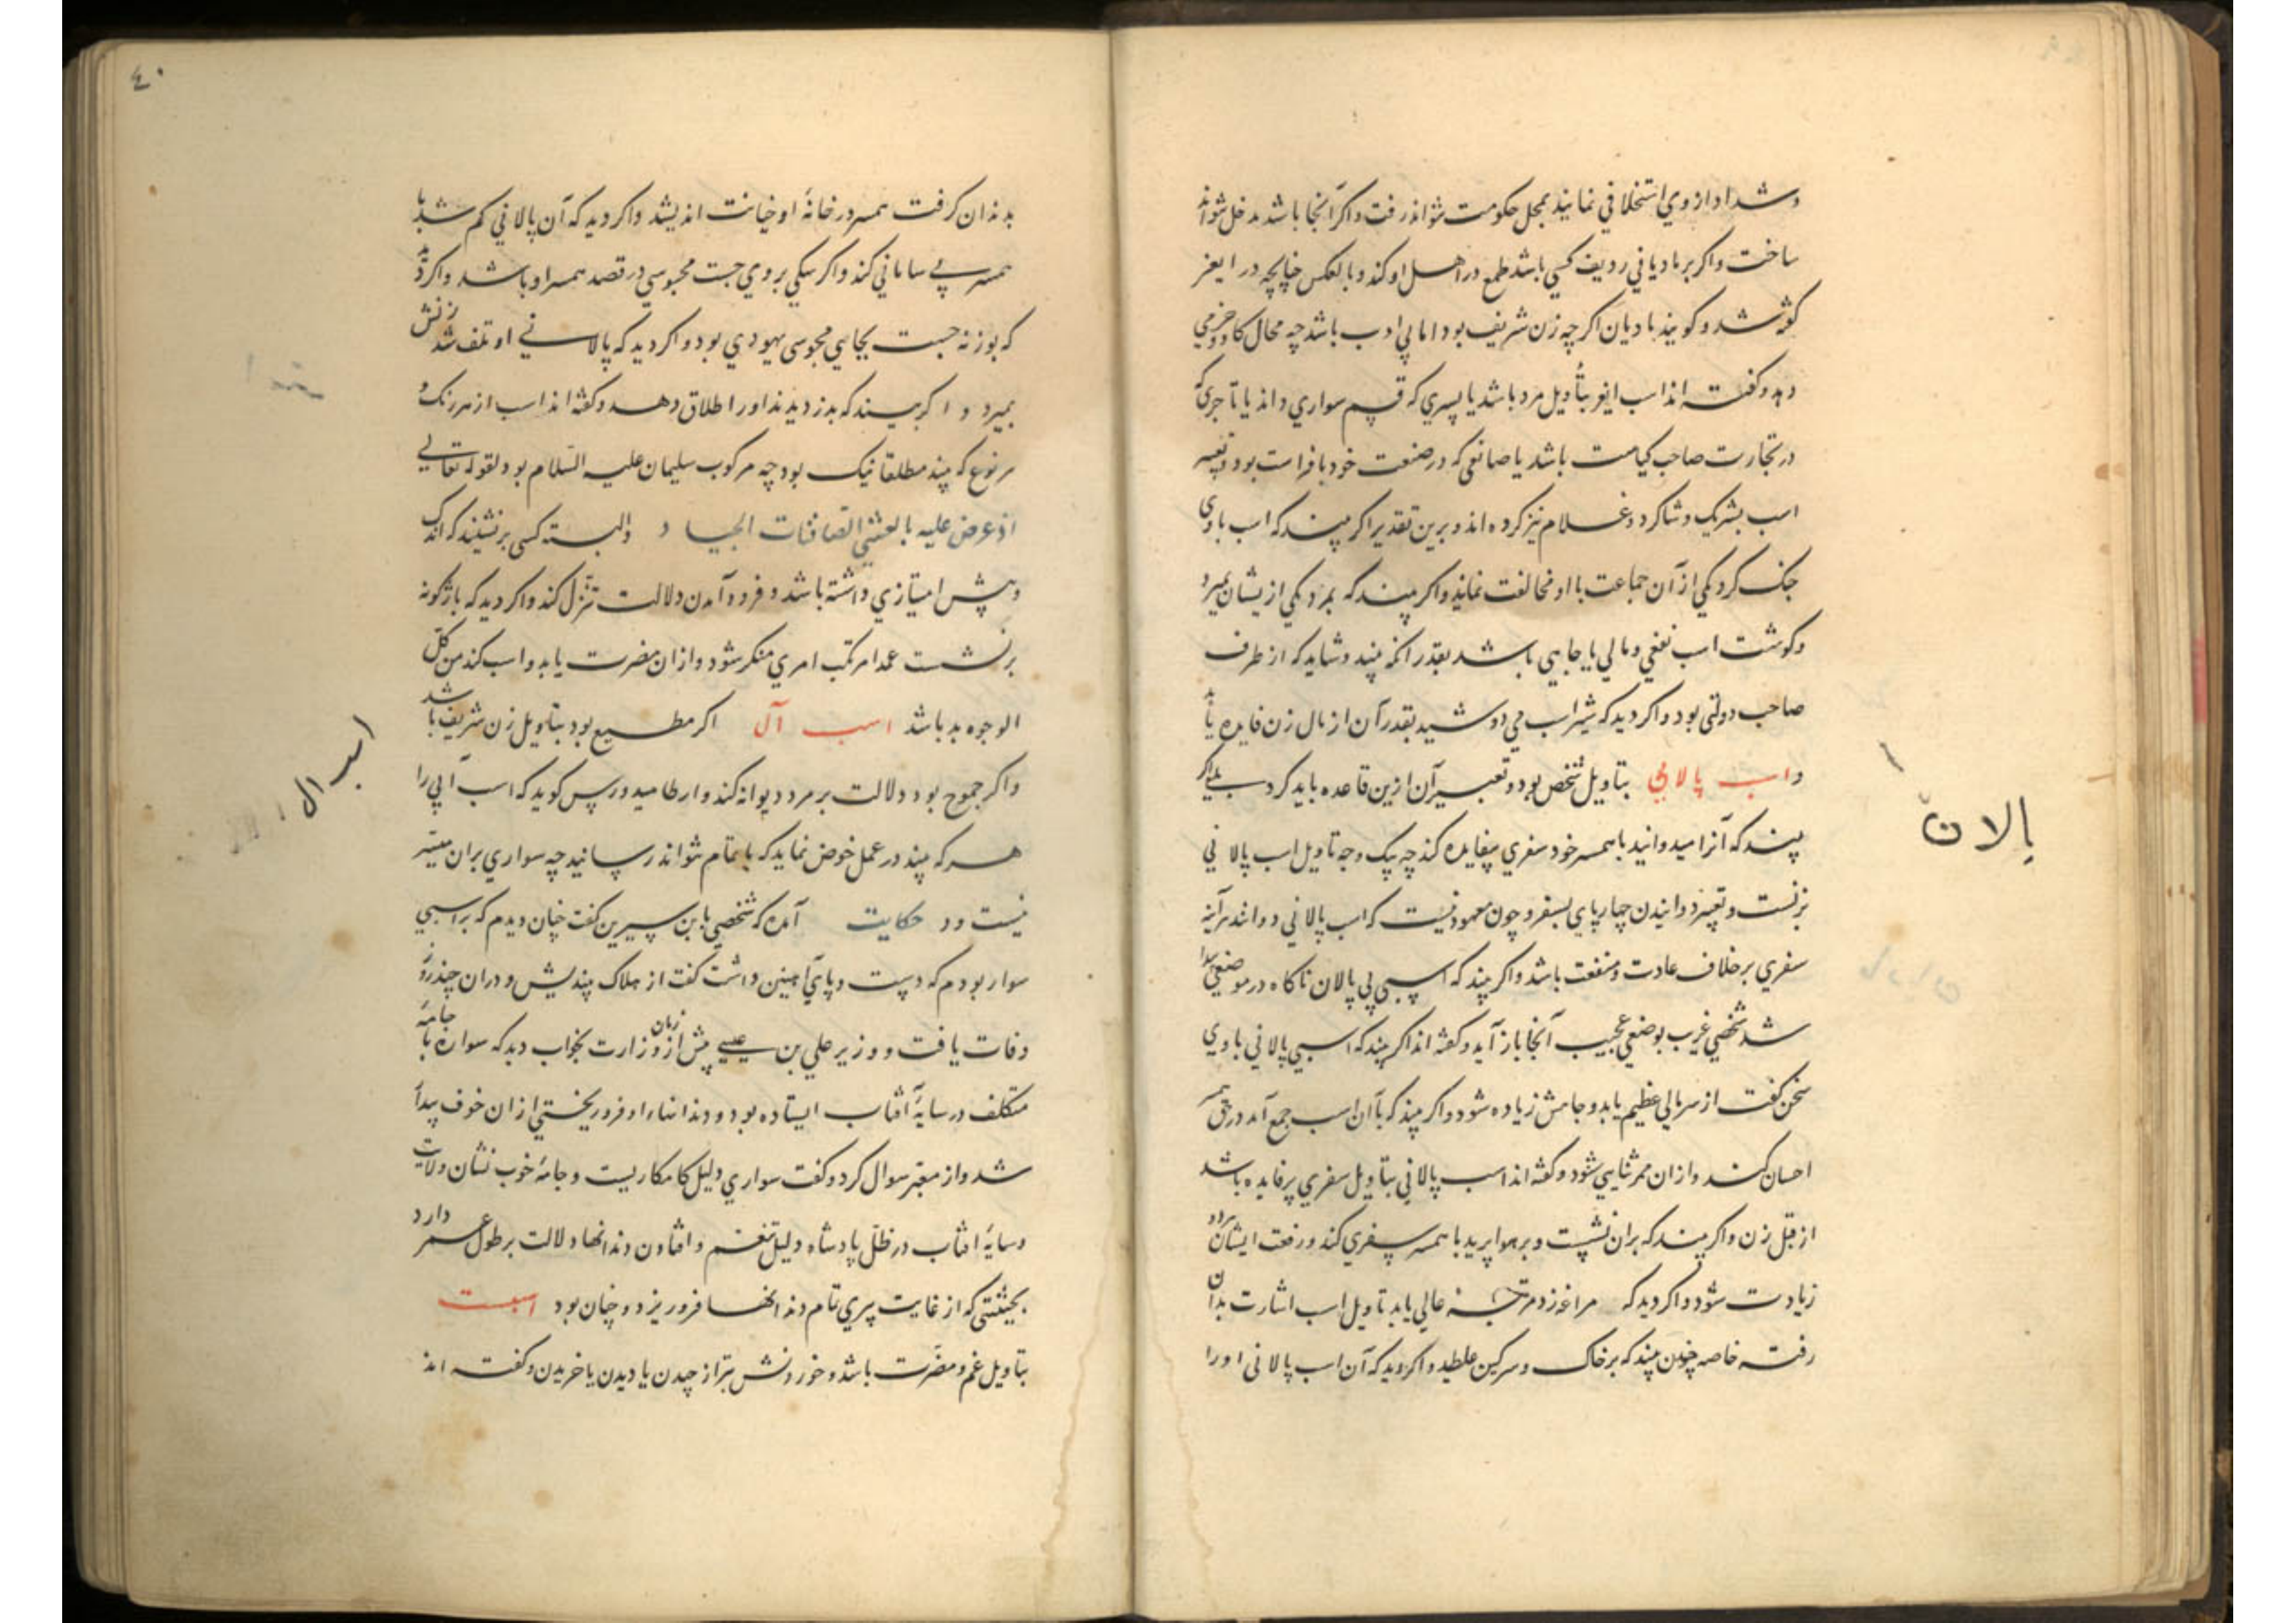 و شداد از وي استخلافي نمايند بمحل حكومت نتواند رفت و اكر آنجا باشد مدخل نتواند
ساخت و اكر بر ماديانى رديف كسي باشد طمع در اهل او كند و بالعكس چنانچه در
كفته شد و كويند ماديان اكر چه زن شريف بود اما بي ادب باشد چه محال
دهد و كفته اند اسب بتأويل مرد باشد يا پسري كه سواري داند يا تاجري كه
در تجارت صاحب كياست باشد يا صانعى كه در صنعت خود با فراست بود و تعبير
اسب بشريك و شاكرد و غلام نيز كرده اند و برين تقدير اكر بيند كه اسب با وي
جنك كرد يكي از آن جماعت با او مخالفت نمايد و اكر بيند كه بمرد يكي ازيشان بميرد
و كوشت اسب نفعي و مالي يا جاهي باشد بقدر آنكه بيند و شايد كه از طرف
صاحب دولتى بود و اكر ديد كه شير اسب مي دوشيد بقدر آن از مال زن فايده يابد
و اسب پالاني بتاويل شخص بود و تعبير آن ازين قاعده بايد كرد
بيند كه آنرا ميدوانيد با همسر خود سفري بيفايده كند چه يك وجه تاويل اسب پالاني
بزنست و تعبير دوانيدن چهارپاي بسفر و چون معهود نيست كه اسب پالاني دوانند هرآينه
سفري برخلاف عادت و منفعت باشد و اكر بيند كه اسبي بي پالان ناكاه در موضعي پيدا
شد شخصي غريب بوضعي عجيب آنجا باز آيد و كفته اند اكر بيند كه اسبي پالاني با وي
سخن كفت از سر مالي عظيم يابد و جاهش زياده شود و اكر بيند كه با آن اسب جمع آمد در حق همسر
احسان كند و از ان ممر ثنايي شنود و كفته اند اسب پالاني بتاويل سفري پرفايده باشد
از قبل زن و اكر بيند كه بران نشست و بر هوا پريد با همسر سفري كند و رفعت ايشان
زيادت شود و اكر ديد كه مراغه زد مرتبه عالي يابد تاويل اسب اشارت بدان
رفت خاصه چون بيند كه بر خاك و سركين غلطيد و اكر ديد كه آن اسب پالانى او را
پالان
٤٠
بدندان كرفت همسر در خانهٔ او خيانت انديشد و اكر ديد كه آن پالاني كم شد يا
همسر بي ساماني كند و اكر سكي بروي جست مجوسي در قصد همسر او باشد و اكر ديد
كه بوزنه جست بجاي مجوسى يهودي بود و اكر ديد كه پالاني او تلف شد زنش
بميرد و اكر بيند كه بدزديدند او را طلاق دهد و كفته اند اسب از هر رنك و
هر نوع كه بيند مطلقا نيك بود چه مركوب سليمان عليه السّلام بود لقوله تعالي
اذ عرض عليه بالعشي الصافنات الجياد و البته كسى برنشيند كه اندك
و بيش امتيازي داشته باشد و فرود آمدن دلالت تنزّل كند و اكر ديد كه باژكونه
برنشست عمدا مرتكب امري منكر شود و ازان مضرت يابد و اسب كند من كلّ
الوجوه بد باشد اسب آل اكر مطيع بود بتاويل زن شريف باشد
و اكر جموح بود دلالت بر مرد ديوانه كند و ارطاميدورس كويد كه اسب آبي را
هركه بيند در عمل خوض نمايد كه باتمام نتواند رسانيد چه سواري بران ميسّر
نيست و در حكايت آمده كه شخصي با ابن سيرين كفت چنان ديدم كه بر اسبي
سوار بودم كه دست و پاي آهنين داشت كفت از هلاك بينديش و دران چند روز
وفات يافت و وزير علي بن عيسى پيش از زمان وزارت بخواب ديد كه سواره با جامهٔ
متكلف در سايهٔ آفتاب ايستاده بود و دندانهاء او فرو ريختي ازان خوف پيدا
شد و از معبّر سوال كرد و كفت سواري دليل كامكاريست و جامهٔ خوب نشان ولايت
و سايهٔ افتاب در ظلّ پادشاه دليل تنعّم و افتادن دندانها دلالت بر طول عمر دارد
بحيثيتى كه از غايت پيري تمام دندانها فرو ريزد و چنان بود اسبست
بتاويل غم و مضرّت باشد و خوردنش بتر از چيدن يا ديدن يا خريدن و كفته اند
اسب ال